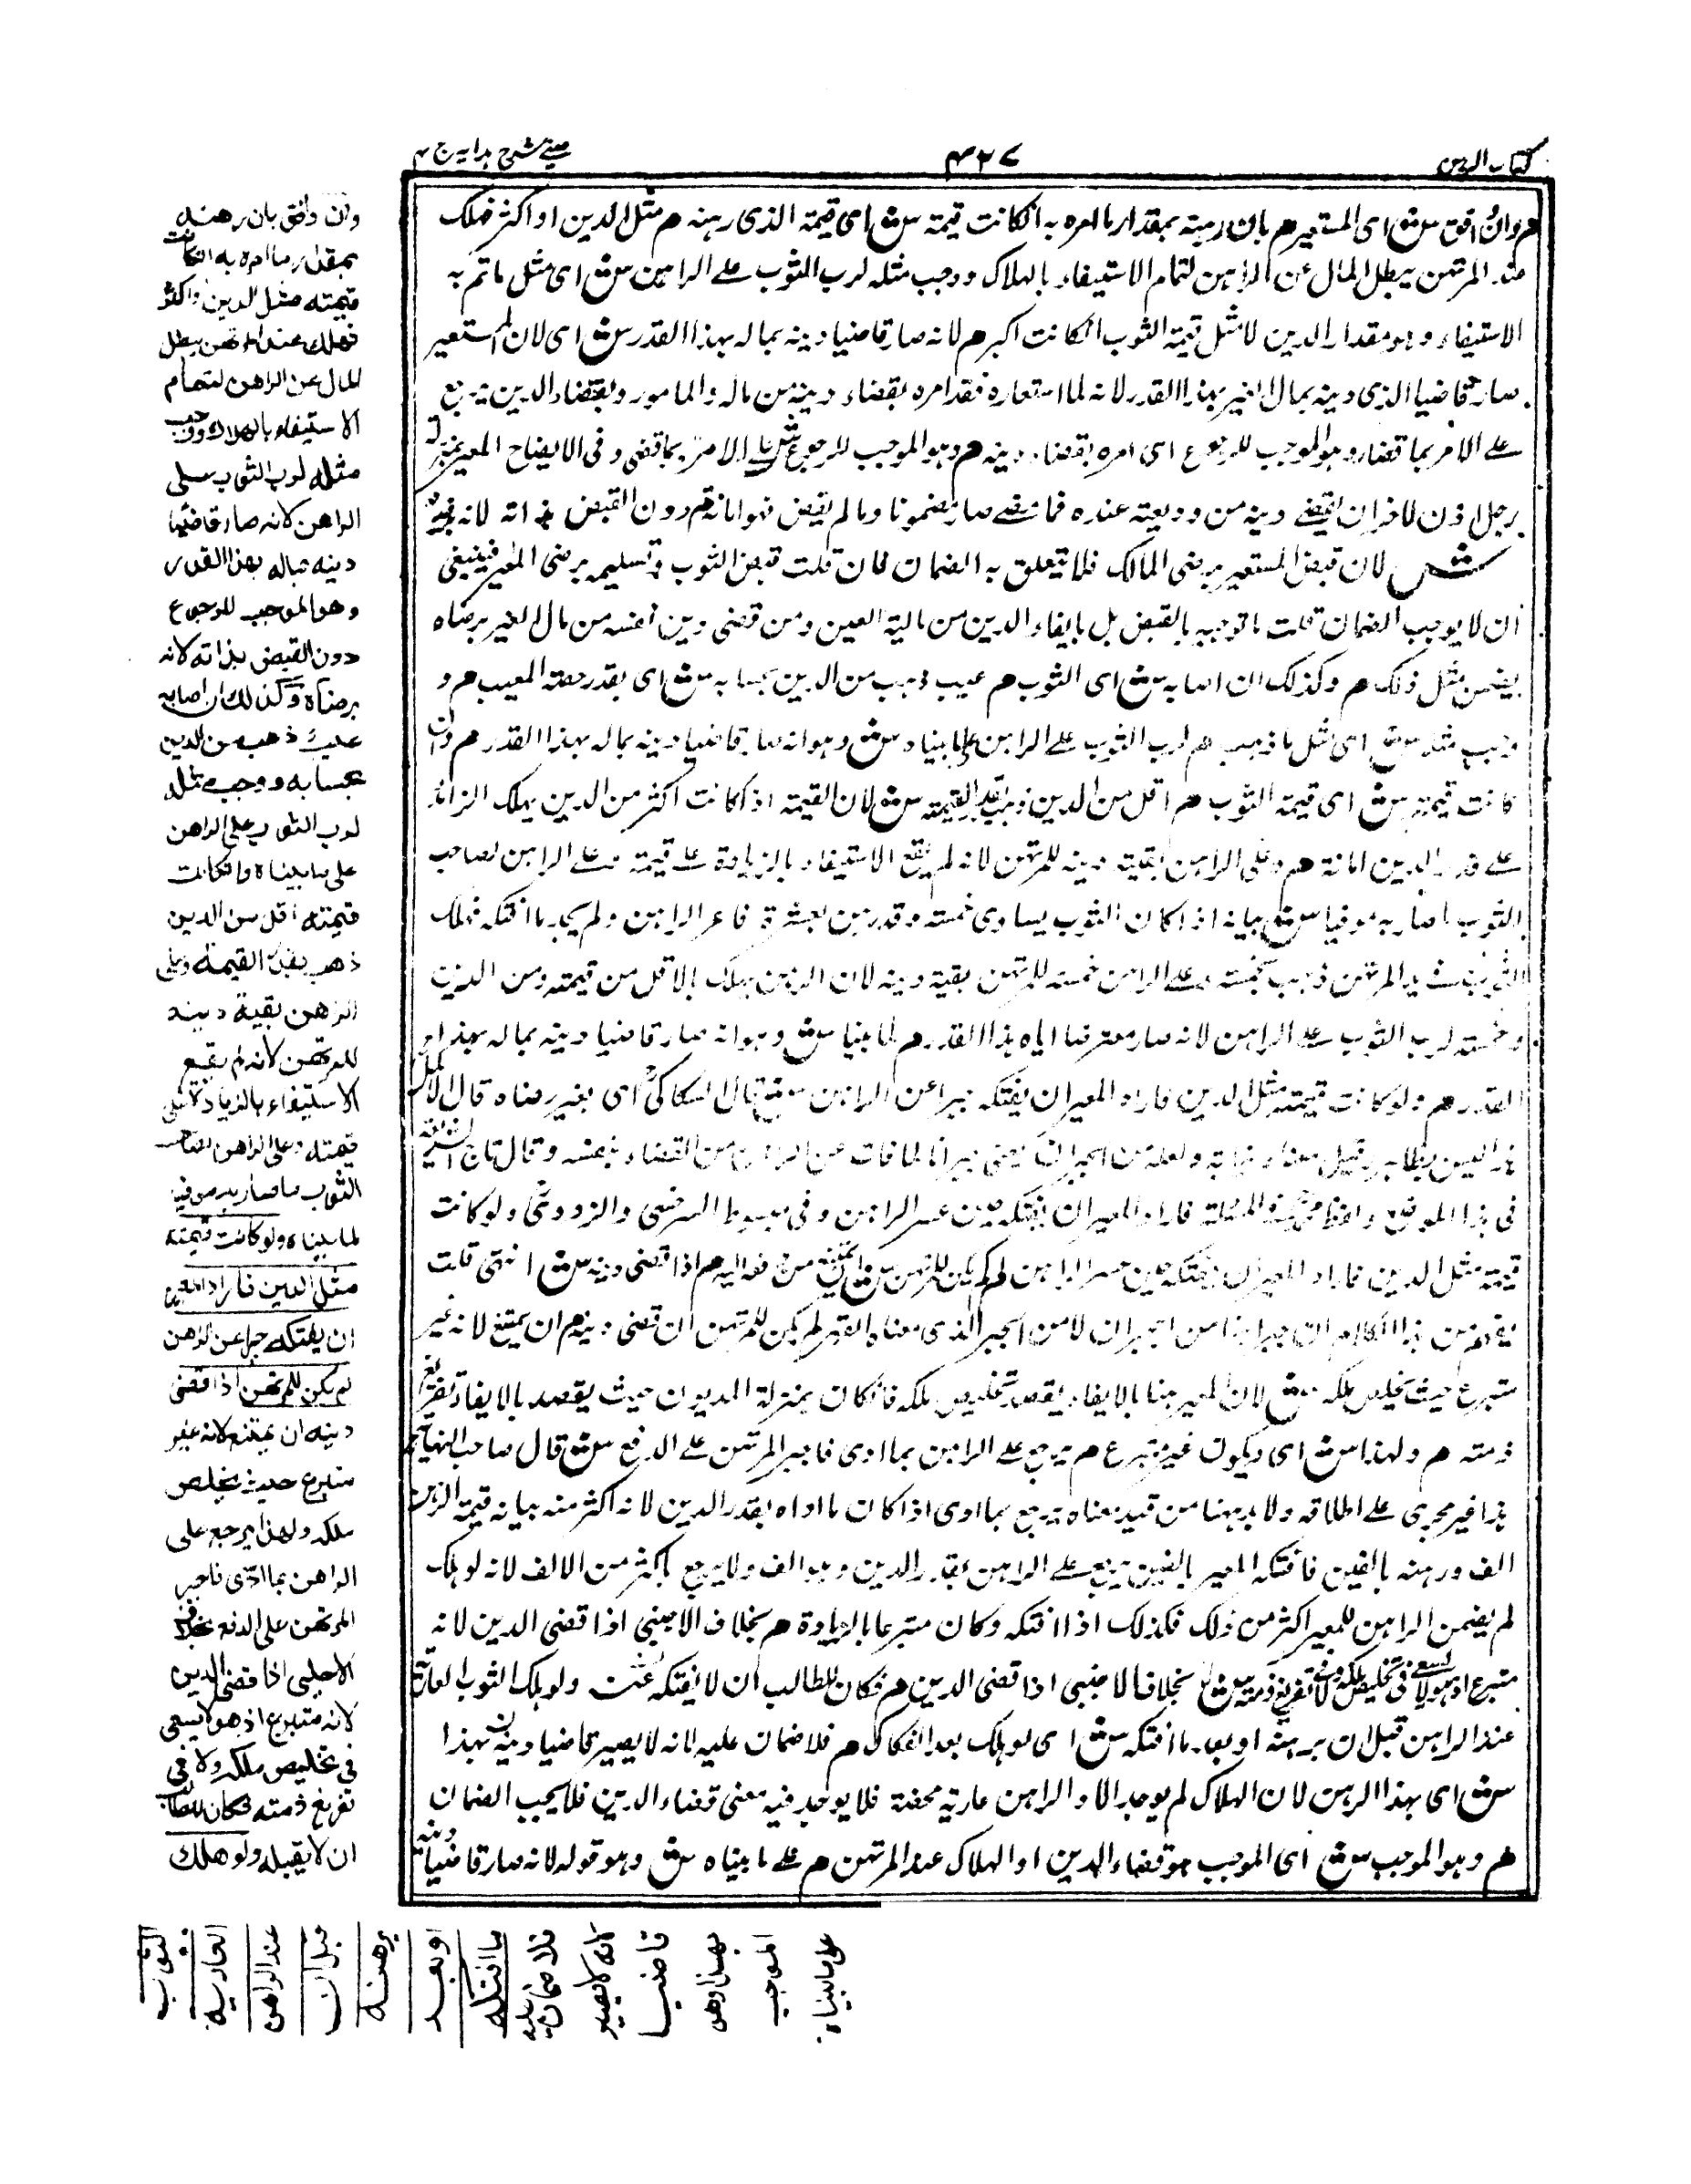 كتاب الرهن
٤٢٧
عينى شرح هدايه ج ٤
م وان وافق س ش اى المستعير م بان رهنه بمقدار ما امره به ان كانت قيمته س ش اى قيمة الذى رهنه م مثل الدين او اكثر فهلك
عند المرتهن يبطل المال عن الراهن لتمام الاستيفاء بالهلاك ووجب مثله لرب الثوب على الراهن س ش اى مثل ما تم به
الاستيفاء وهو مقدار الدين لا مثل قيمة الثوب ان كانت اكبر م لانه صار قاضيا دينه بماله بهذا القدر س ش اى لان المستعير
صار قاضيا الذى دينه بمال الغير بهذا القدر لانه لما استعاره فقد امره بقضاء دينه من ماله والمامور بقضاء الدين يرجع
على الآمر بما قضاه وهو الموجب للرجوع اى امره بقضاء دينه م وهو الموجب للرجوع س ش على الآمر بما قضى وفى الايضاح المعير بمنزلة
رجل اذن لآخر ان يقضى دينه من وديعته عنده فما قضى صار مضمونا وما لم يقض فهو امانة م دون القبض بذاته لانه برضاه
ش لان قبض المستعير برضى المالك فلا يتعلق به الضمان فان قلت قبض الثوب وتسليمه برضى المعير فينبغى
ان لا يوجب الضمان قلت ما توجبه بالقبض بل بايفاء الدين من مالية العين ومن قضى دين نفسه من مال الغير برضاه
يضمن مثل ذلك م وكذلك ان اصابه س ش اى الثوب م عيب ذهب من الدين بحسابه س ش اى بقدر حصة المعيب م و
وجب مثله س ش اى مثل ما ذهب م لرب الثوب على الراهن على ما بيناه س ش وهو انه صار قاضيا دينه بماله بهذا القدر م وان
كانت قيمته س ش اى قيمة الثوب م اقل من الدين ذهب بقدر القيمة س ش لان القيمة اذا كانت اكثر من الدين يهلك الزائد
على قدر الدين امانة م وعلى الراهن بقية دينه للمرتهن لانه لم يقع الاستيفاء بالزيادة على قيمته وعلى الراهن لصاحب
الثوب ما صار به موفيا س ش بيانه اذا كان الثوب يساوى خمسة وقد رهن بعشرة فاعسر الراهن ولم يجد ما افتكه فهلك
الثوب فى يد المرتهن ذهب بخمسة وعلى الراهن خمسة للمرتهن بقية دينه لان الرهن يهلك بالاقل من قيمته ومن الدين
وخمسة لرب الثوب على الراهن لانه صار مقترضا اياه هذا القدر م لما بينا س ش وهو انه صار قاضيا دينه بماله بهذا
القدر م ولو كانت قيمته مثل الدين فاراد المعير ان يفتكه جبرا عن الراهن س ش قال السكاكى اى بغير رضاه قال الاكمل
هذا ليس بظاهر وقيل معناه نيابة ولعله من الجبران يعنى جبرانا لما فات عن الراهن من القضاء بنفسه وقال تاج الشريعة
فى هذا الموضع فاراد المعير ان يفتكه حين عسر الراهن وفى مبسوط السرخسى ولو كانت
قيمته مثل الدين فاراد المعير ان يفتكه حين عسر الراهن لم يكن للمرتهن دفعه اليه م اذا قضى دينه س ش انتهى قلت
يفهم من هذا الكلام ان جبرا هنا من الجبران لا من الجبر الذى معناه القهر لم يكن للمرتهن اذا قضى دينه م ان يمتنع لانه غير
متبرع حيث يخلص ملكه س ش لان المعير هنا بالايفاء يقصد تخليص ملكه فكان بمنزلة المديون حيث يقصد بالايفاء تفريغ
ذمته م ولهذا س ش اى ويكون غير متبرع م يرجع على الراهن بما ادى فاجبر المرتهن على الدفع س ش قال صاحب النهاية
هذا غير مجرى على اطلاقه ولا بد ههنا من قيد معناه يرجع بما ادى اذا كان ما اداه بقدر الدين لانه اكثر منه بيانه قيمة الرهن
الف ورهنه بالفين فافتكه المعير بالفين يرجع على الراهن بقدر الدين وهو الف ولا يرجع باكثر من الالف لانه لو هلك
لم يضمن الراهن للمعير اكثر من ذلك فكذلك اذا افتكه وكان متبرعا بالزيادة م بخلاف الاجنبى اذا قضى الدين لانه
متبرع اذ هو لا يسعى فى تخليص ملكه ولا فى تفريغ ذمته س ش بخلاف الاجنبى اذا قضى الدين م فكان للطالب ان لا يفتكه ولو هلك الثوب العارية
عند الراهن قبل ان يرهنه او بعد ما افتكه س ش اى لو هلك بعد الفكاك م فلا ضمان عليه لانه لا يصير قاضيا دينه بهذا
س ش اى بهذا الرهن لان الهلاك لم يوجد الا والراهن عارية محضة فلا يوجد فيه معنى قضاء الدين فلا يجب الضمان
م وهو الموجب س ش اى الموجب هو قضاء الدين او الهلاك عند المرتهن م على ما بيناه س ش وهو قوله لانه صار قاضيا دينه
وان وافق بان رهنه
بمقدار ما امره به ان كانت
قيمته مثل الدين او اكثر
فهلك عند المرتهن يبطل
المال عن الراهن لتمام
الاستيفاء بالهلاك ووجب
مثله لرب الثوب على
الراهن لانه صار قاضيا
دينه بماله بهذا القدر
وهو الموجب للرجوع
دون القبض بذاته لانه
برضاه وكذلك ان اصابه
عيب ذهب من الدين
بحسابه ووجب مثله
لرب الثوب على الراهن
على ما بيناه وان كانت
قيمته اقل من الدين
ذهب بقدر القيمة وعلى
الراهن بقية دينه
للمرتهن لانه لم يقع
الاستيفاء بالزيادة على
قيمته وعلى الراهن لصاحب
الثوب ما صار به موفيا
لما بيناه ولو كانت قيمته
مثل الدين فاراد المعير
ان يفتكه جبرا عن الراهن
لم يكن للمرتهن اذا قضى
دينه ان يمتنع لانه غير
متبرع حيث يخلص
ملكه ولهذا يرجع على
الراهن بما ادى فاجبر
المرتهن على الدفع بخلاف
الاجنبى اذا قضى الدين
لانه متبرع اذ هو لا يسعى
فى تخليص ملكه ولا فى
تفريغ ذمته فكان للطالب
ان لا يقبله ولو هلك
الثوب
العارية
عند الراهن
قبل ان
يرهنه
او بعد
ما افتكه
فلا ضمان عليه
لانه لا يصير
قاضيا
بهذا وهو
الموجب
على ما بيناه